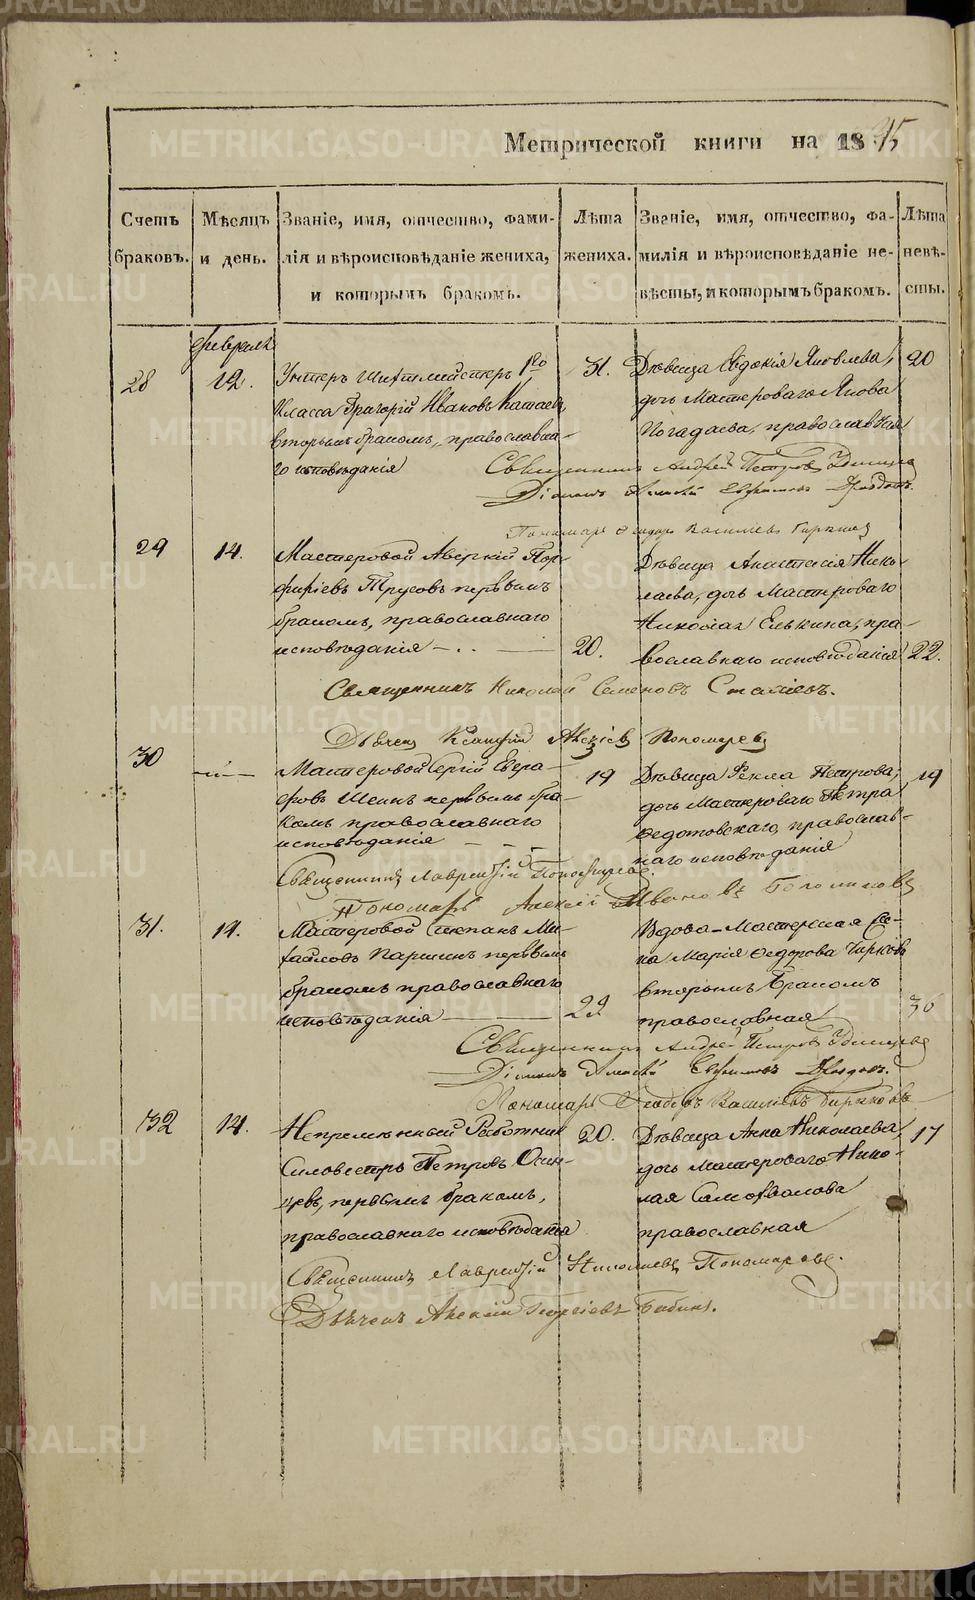 Метрической книги на 18
Счетъ браковъ.
Мѣсяцъ и день.
Званіе, имя, отчество, фами-
лія и вѣроисповѣданіе жениха,
и которымъ бракомъ.
Лѣта жениха.
Званіе, имя, отчество, фа-
милія и вѣроисповѣданіе не-
вѣсты, и которымъ бракомъ.
Лѣта невѣ-
сты.
февраля
28
12.
Унтеръ Шихтмейстеръ 1го
класса Григорій Ивановъ Катаевъ
вторымъ бракомъ, православна-
го исповѣданія
31.
Дѣвица Евдокія Яковлева,
дочь Мастероваго Якова
Погадаева, православная
20
Священникъ Андрей Петровъ Удинцевъ
Діаконъ Алексѣй
Пономарь Ѳеодоръ Василіевъ
29
14.
Мастеровой Аверкій Пор-
фиріевъ Трусовъ первымъ
бракомъ, православнаго
исповѣданія
20.
Дѣвица Анастасія Нико-
лаева, дочь Мастероваго
Николая Елькина, пра-
вославнаго исповѣданія
22.
Священникъ Николай Семеновъ
Дьячекъ Пономаревъ
30
Мастеровой Сергій Евгра-
фовъ Шеинъ первымъ бра-
комъ православнаго
исповѣданія
19
Дѣвица Ѳекла Петрова,
дочь Мастероваго Петра
Ѳедотовскаго, православ-
наго исповѣданія
19
Священникъ Лаврентій Пономаревъ.
Пономарь Алексій Ивановъ
31.
14.
Мастеровой Степанъ Ми-
хайловъ Паршинъ первымъ
бракомъ православнаго
исповѣданія
22
Вдова Мастерская
Марія Ѳедорова
вторымъ бракомъ
православная
36
Священникъ Андрей Петровъ Удинцевъ
Діаконъ Алексѣй
Пономарь Ѳеодоръ Василіевъ
32
14.
Непремѣнный Работникъ
Силовестръ Петровъ Осин-
цевъ, первымъ бракомъ,
православнаго исповѣданія
20.
Дѣвица Анна Николаева,
дочь Мастероваго Нико-
лая Самохвалова
православная
17
Священникъ Лаврентій Николаевъ Пономаревъ.
Дьячекъ Алексій Георгіевъ Бабинъ.